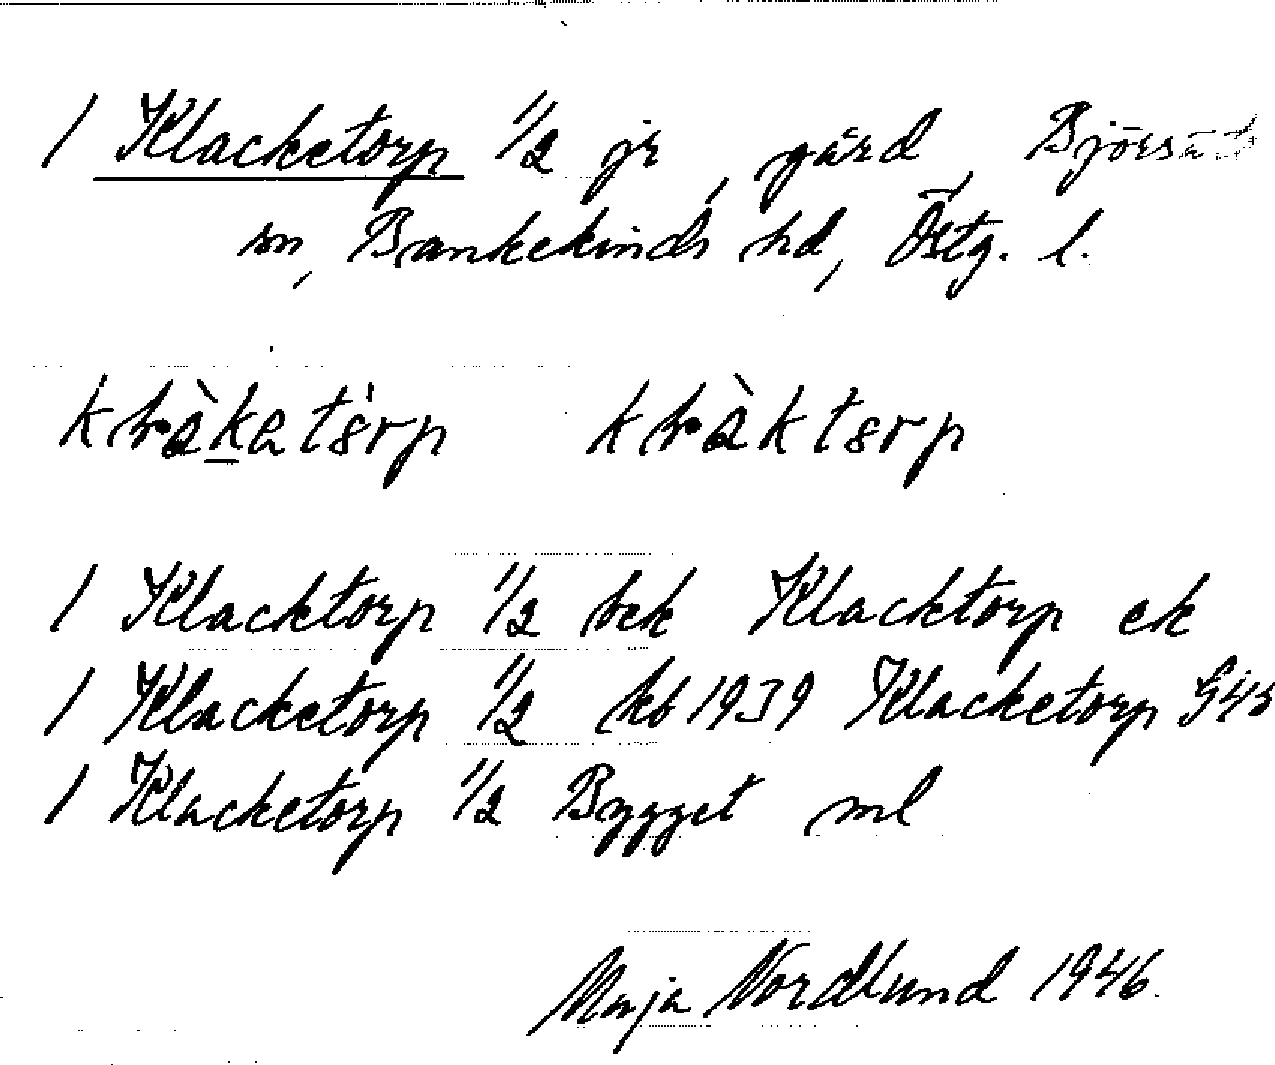 1 Klacketorp 1/2 jr, gård, Björsät
sn, Bankekinds hd, Östg. l.
1 Klacktorp 1/2 bek Klacktorp ek
1 Klacketorp 1/2 kb 1939 Klacketorp G43
1 Klacketorp 1/2 Bygget ml
Maja Nordlund 1946.